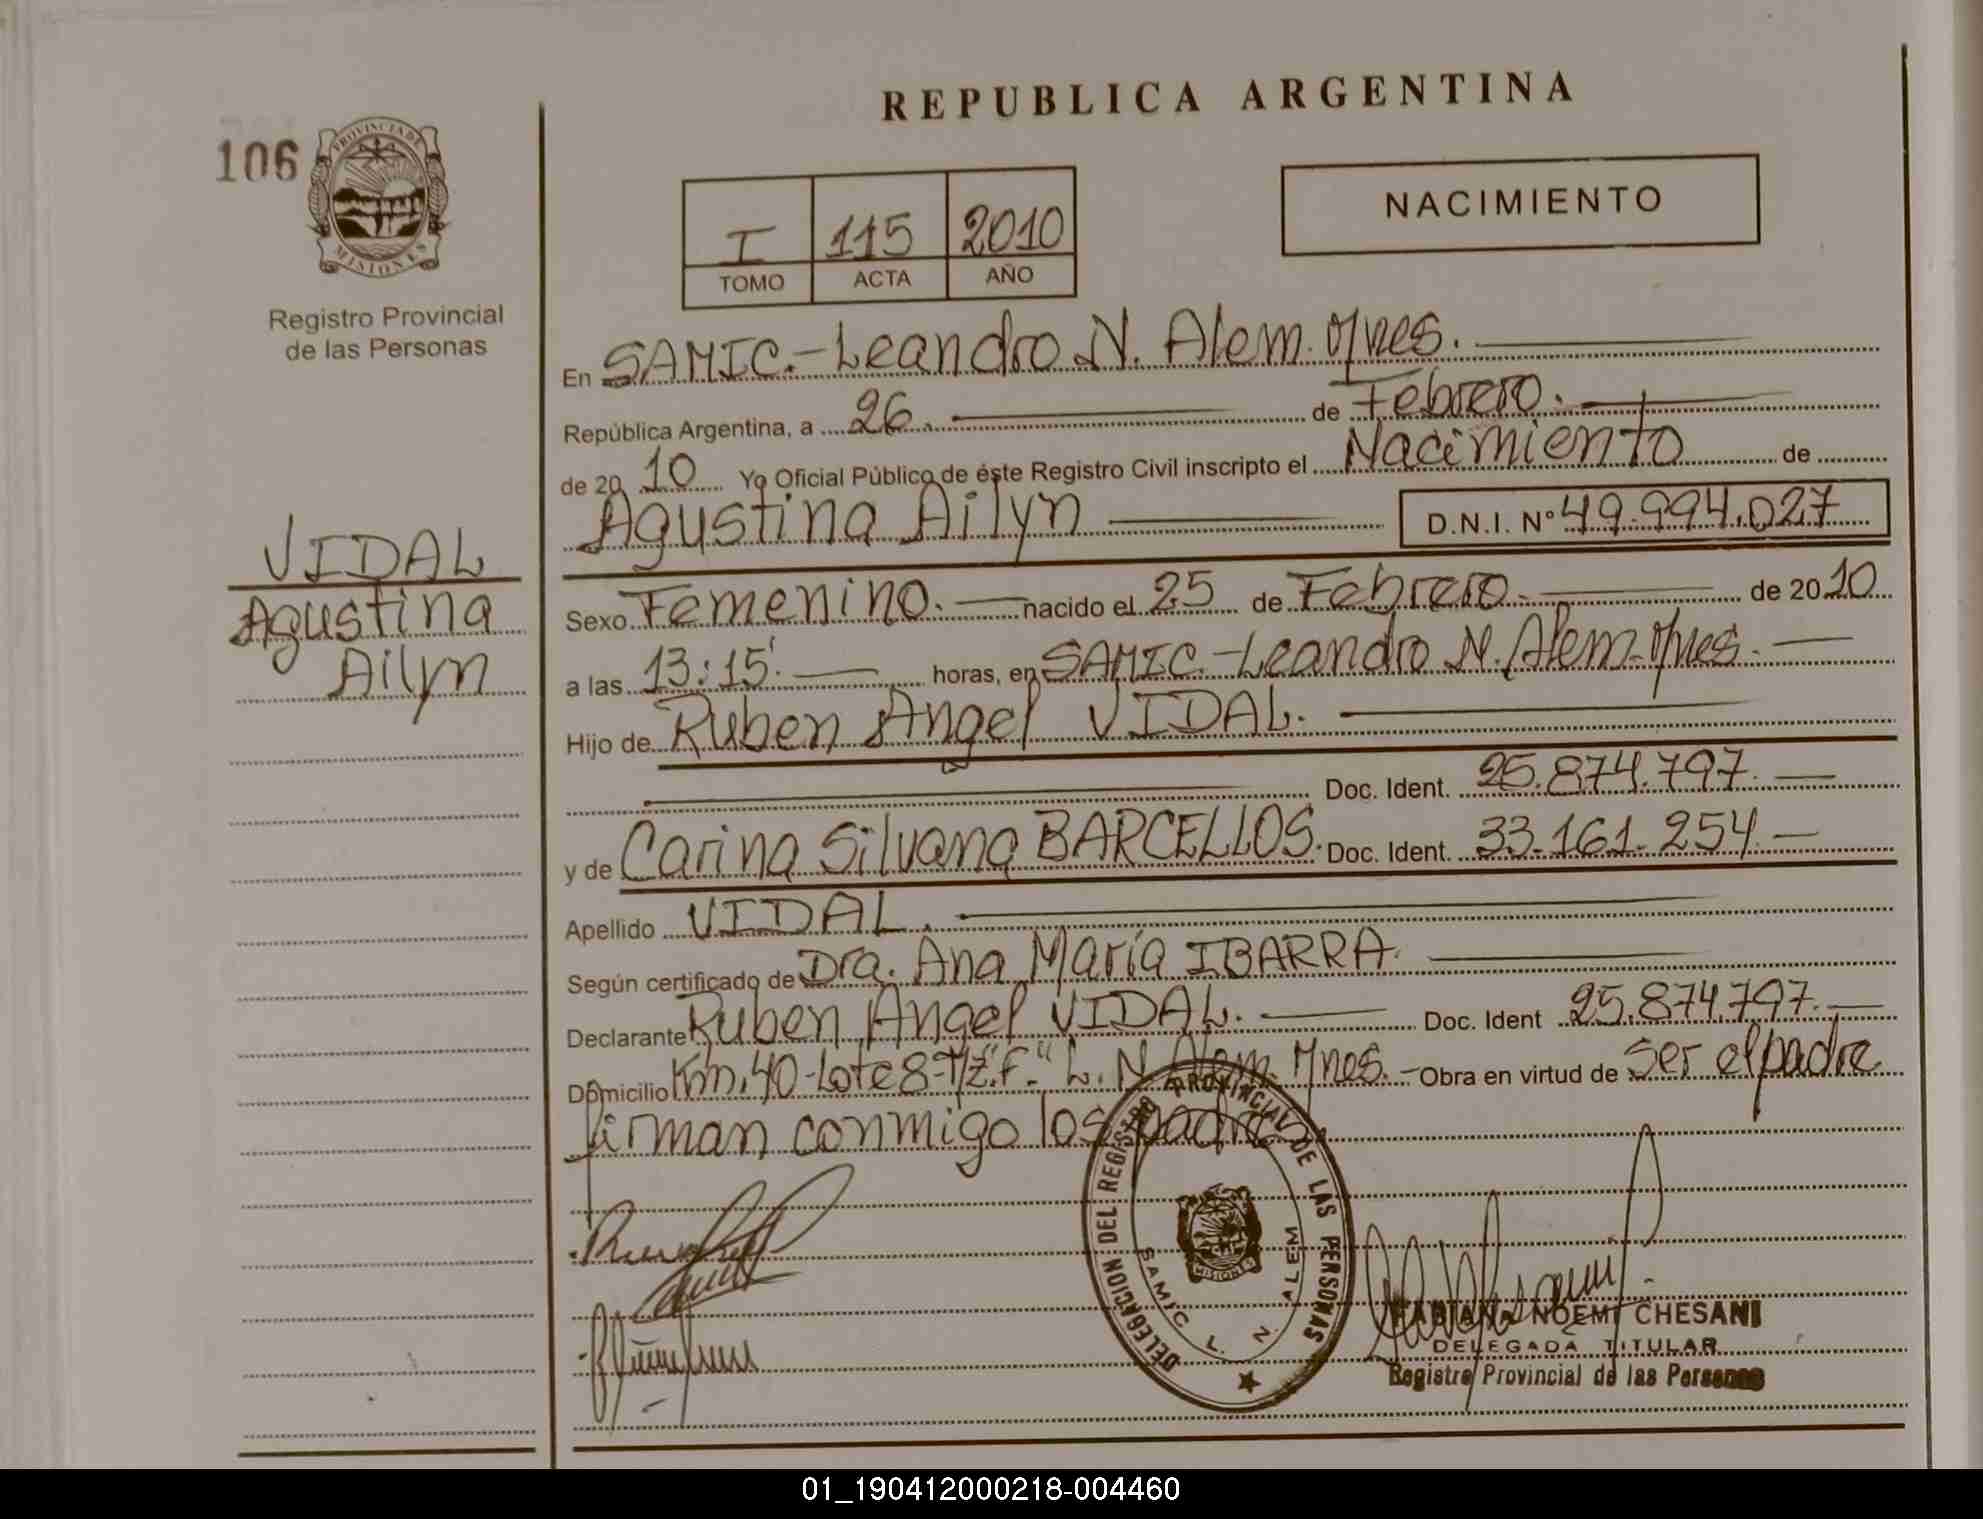 REPUBLICA ARGENTINA
106
PROVINCIA DE
MISIONES
Registro Provincial
de las Personas
NACIMIENTO
I 115 2010
TOMO ACTA AÑO
En SAMIC.-Leandro N. Alem. Mnes.
República Argentina, a 26. de Febrero.
de 20 10 Yo Oficial Público de éste Registro Civil inscripto el Nacimiento de
Agustina Ailyn D.N.I. Nº 49.994.027
VIDAL
Agustina
Ailyn
Sexo Femenino. nacido el 25 de Febrero. de 20 10
a las 13:15'. horas, en SAMIC.-Leandro N. Alem-Mnes.
Hijo de Ruben Angel VIDAL.
Doc. Ident. 25.874.797.
y de Carina Silvana BARCELLOS. Doc. Ident. 33.161.254.
Apellido VIDAL.
Según certificado de Dra. Ana María IBARRA.
Declarante Ruben Angel VIDAL. Doc. Ident 25.874.797.
Domicilio Km.40-Lote 8-Mz."F." L. N. Alem. Mnes. - Obra en virtud de ser el padre
firman conmigo los padres
DELEGACION DEL REGISTRO PROVINCIAL DE LAS PERSONAS
SAMIC L. N. ALEM
MISIONES
FABIANA NOEMI CHESANI
DELEGADA TITULAR
Registro Provincial de las Personas
01_190412000218-004460